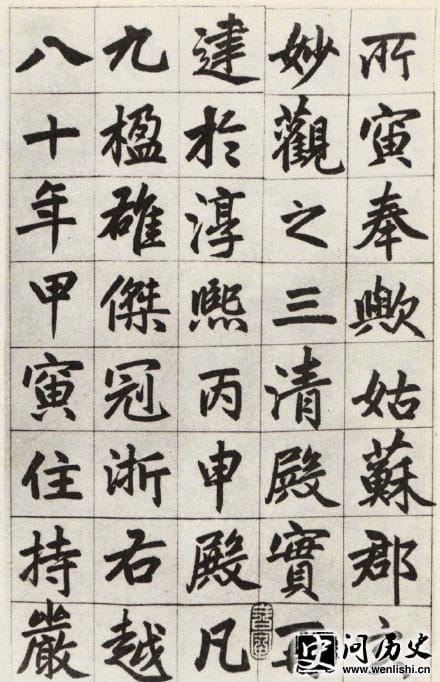 所寅奉歟姑蘇郡
妙觀之三清殿實再
建於淳熙丙申殿凡
九楹雄傑冠浙右越
八十年甲寅住持嚴
问历史
www.wenlishi.cn